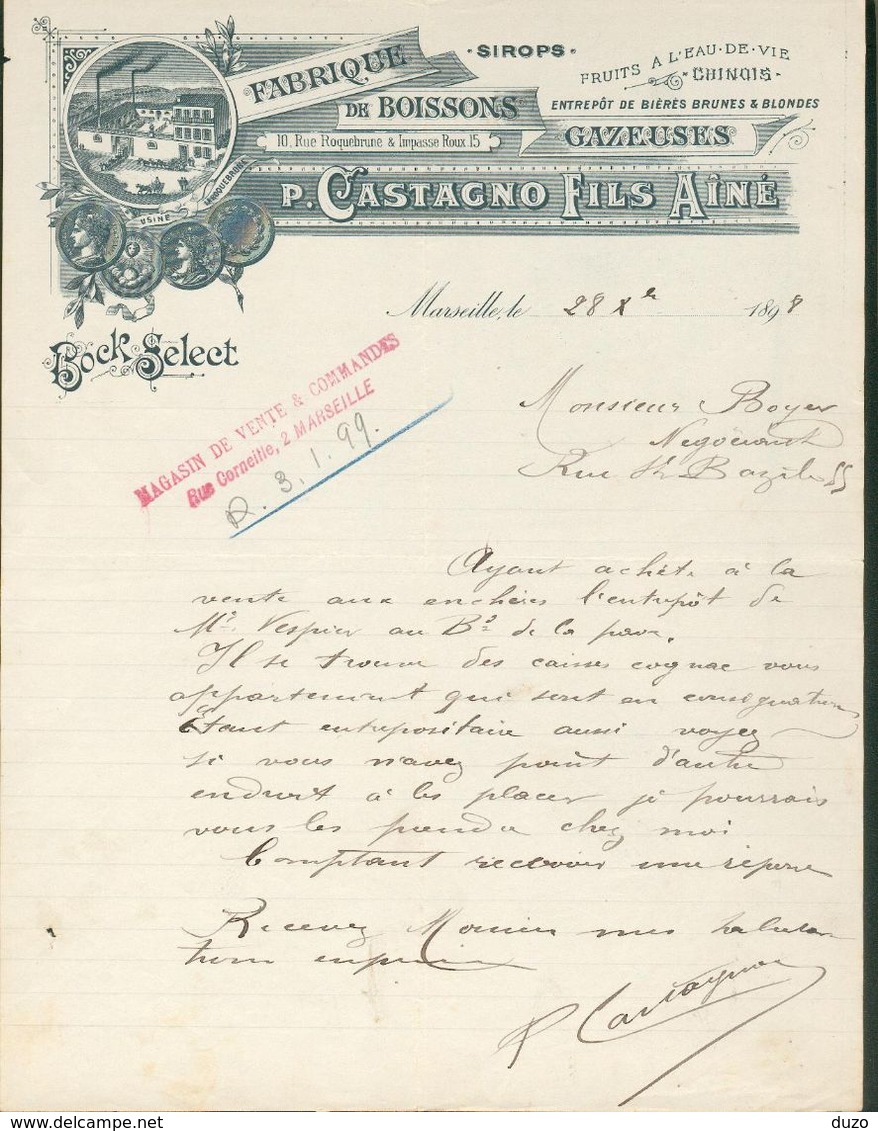 FABRIQUE
DE BOISSONS
GAZEUSES
SIROPS
FRUITS A L'EAU-DE-VIE
CHINOIS
ENTREPÔT DE BIÈRES BRUNES & BLONDES
10, Rue Roquebrune & Impasse Roux 15
P. CASTAGNO FILS AÎNÉ
USINE À ROQUEBRUNE
Bock Select
Marseille, le 28 Xre 1898
MAGASIN DE VENTE & COMMANDES
Rue Corneille, 2 MARSEILLE
R. 3.1.99.
Monsieur Boyer
Négociant
Rue St Bazile 55
Ayant acheté à la
vente aux enchères l'entrepôt de
Mr. Vespier au Bd de la paix.
Il se trouve des caisses cognac vous
appartenant qui sont en consignation
Étant entrepositaire aussi voyez
si vous n'avez point d'autre
endroit à les placer je pourrais
vous les prendre chez moi
Comptant recevoir une réponse
Recevez Monsieur mes saluta
tions empressées
P Castagno
duzo